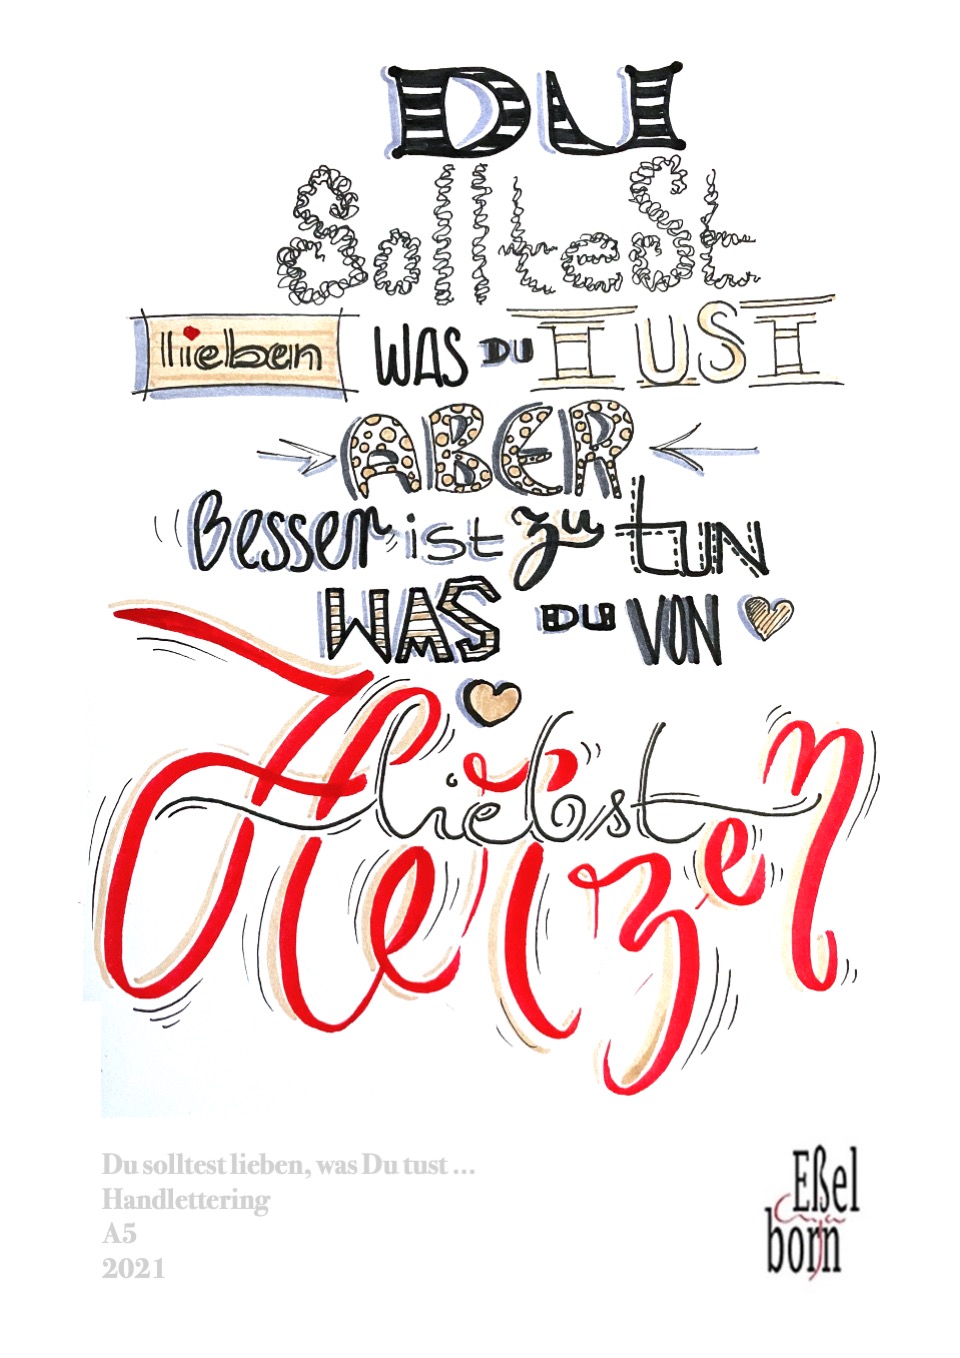 DU
sollteSt
lieben WAS DU TUST
ABER
Besser ist zu tUN
WAS DU VON
Herzen
liebst
Du solltest lieben, was Du tust ...
Handlettering
A5
2021
Eßel
Anja
born